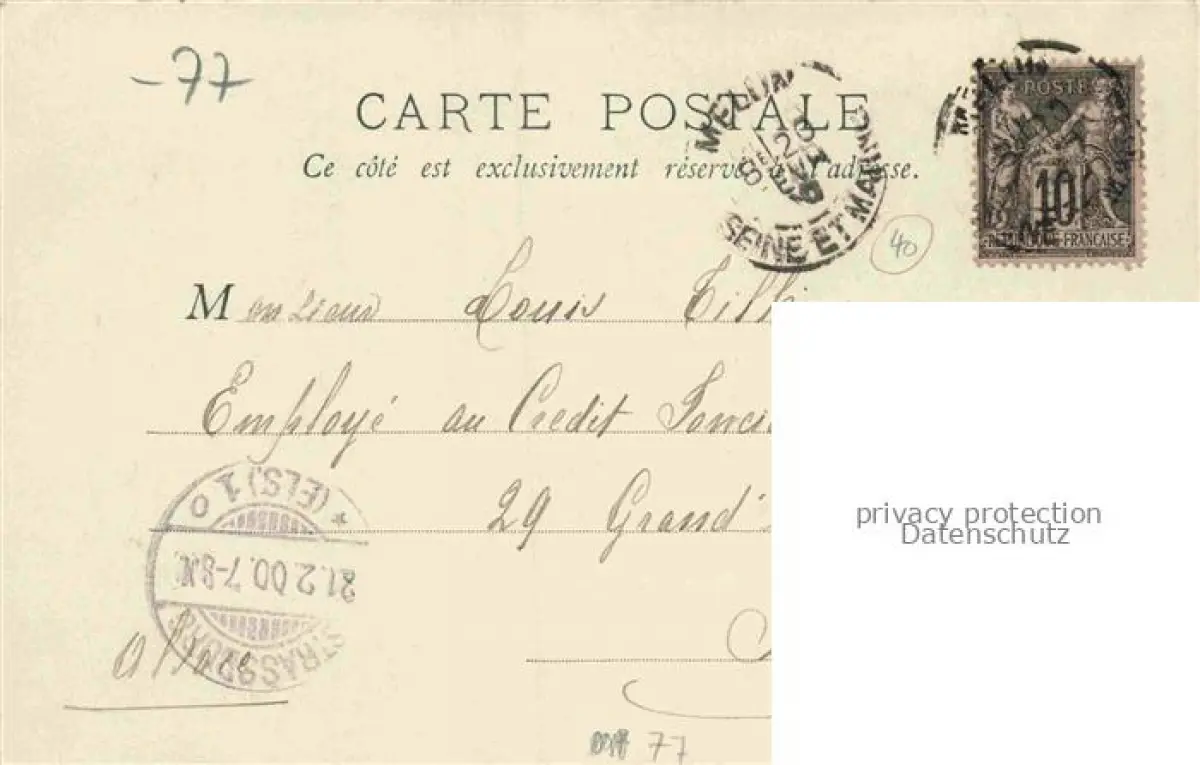 -77
CARTE POSTALE
Ce côté est exclusivement réservé à l'adresse.
MELUN
SEINE ET MARNE
POSTE
10
REPUBLIQUE FRANÇAISE
40
Monsieur Louis
Employé au Credit
29 Grand
STRASSBURG
21.2.00.7-8N.
* (ELS.) 10
77
privacy protection
Datenschutz